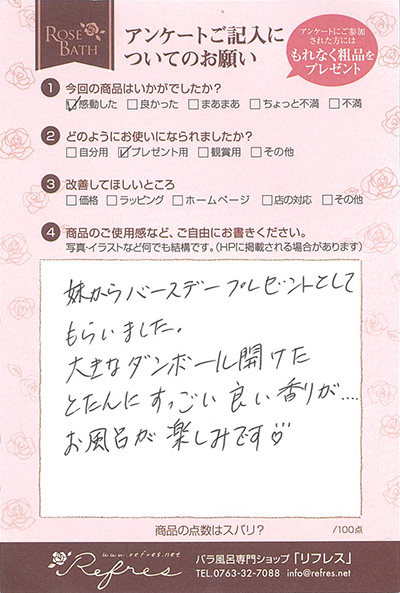 ROSE
BATH
アンケートご記入に
ついてのお願い
アンケートにご参加
された方には
もれなく粗品を
プレゼント
1 今回の商品はいかがでしたか？
☑感動した □良かった □まあまあ □ちょっと不満 □不満
2 どのようにお使いになられましたか？
□自分用 ☑プレゼント用 □観賞用 □その他
3 改善してほしいところ
□価格 □ラッピング □ホームページ □店の対応 □その他
4 商品のご使用感など、ご自由にお書きください。
写真・イラストなど何でも結構です。（HPに掲載される場合があります）
妹からバースデープレゼントとして
もらいました。
大きなダンボール開けた
とたんにすっごい良い香りが....
お風呂が楽しみです♡
商品の点数はズバリ？ /100点
www.refres.net
Refres
バラ風呂専門ショップ「リフレス」
TEL.0763-32-7088 info@refres.net